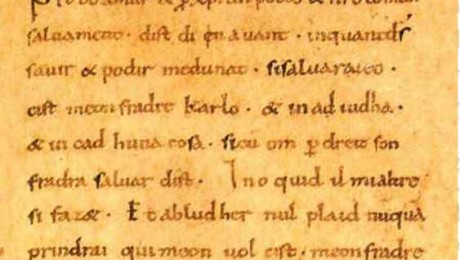 P o do amur & p xpian poblo & nro comun
saluament · dist di en auant · inquantds
sauir & podir medunat · sisaluaraieo ·
cist meon fradre karlo · & in ad iudha ·
& in cad huna cosa · sicu om p dreit son
fradra saluar dist · Ino quid il mialtre
si faz& · Et abludher nul plaid nuquã
prindrai qui meon uol cist · meon fradre